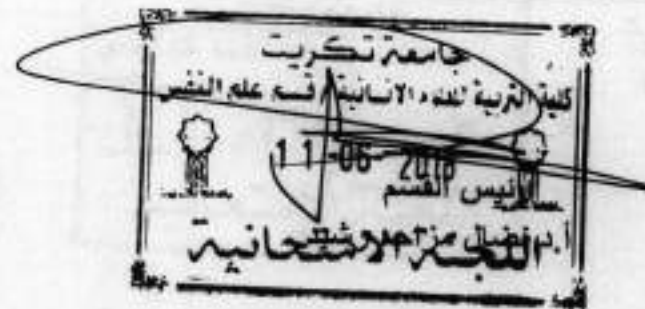 جامعة تكريت
كلية التربية للعلوم الانسانية / قسم علم النفس
11-06-
رئيس القسم
أ.د. نضال مزاحم رشيد
اللجنة الامتحانية